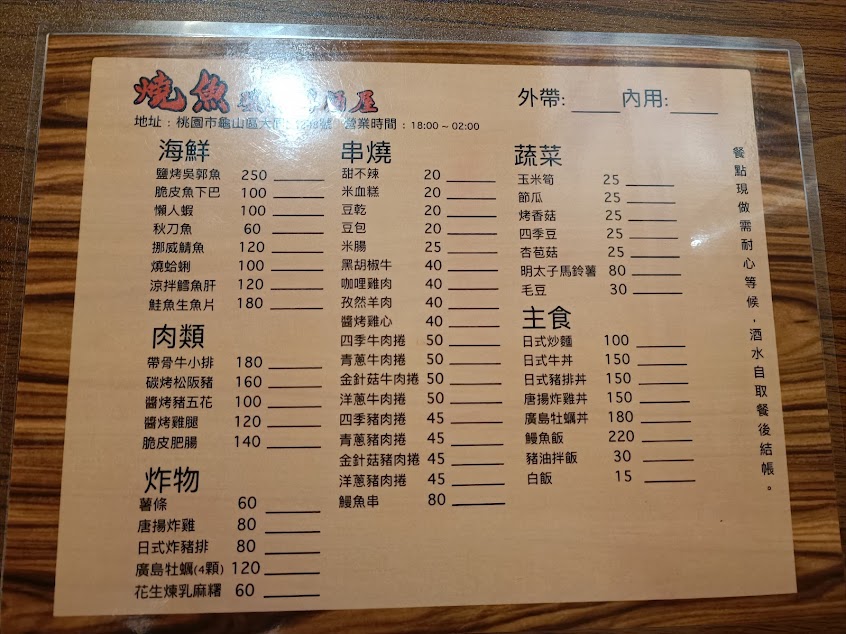 燒魚 酒屋
外帶:____ 內用:____
地址：桃園市龜山區大 號 營業時間：18:00～02:00
海鮮
鹽烤吳郭魚 250
脆皮魚下巴 100
懶人蝦 100
秋刀魚 60
挪威鯖魚 120
燒蛤蜊 100
涼拌鱈魚肝 120
鮭魚生魚片 180
肉類
帶骨牛小排 180
碳烤松阪豬 160
醬烤豬五花 100
醬烤雞腿 120
脆皮肥腸 140
炸物
薯條 60
唐揚炸雞 80
日式炸豬排 80
廣島牡蠣(4顆) 120
花生煉乳麻糬 60
串燒
甜不辣 20
米血糕 20
豆乾 20
豆包 20
米腸 25
黑胡椒牛 40
咖哩雞肉 40
孜然羊肉 40
醬烤雞心 40
四季牛肉捲 50
青蔥牛肉捲 50
金針菇牛肉捲 50
洋蔥牛肉捲 50
四季豬肉捲 45
青蔥豬肉捲 45
金針菇豬肉捲 45
洋蔥豬肉捲 45
鰻魚串 80
蔬菜
玉米筍 25
節瓜 25
烤香菇 25
四季豆 25
杏苞菇 25
明太子馬鈴薯 80
毛豆 30
主食
日式炒麵 100
日式牛丼 150
日式豬排丼 150
唐揚炸雞丼 150
廣島牡蠣丼 180
鰻魚飯 220
豬油拌飯 30
白飯 15
餐點現做需耐心等候，酒水自取餐後結帳。